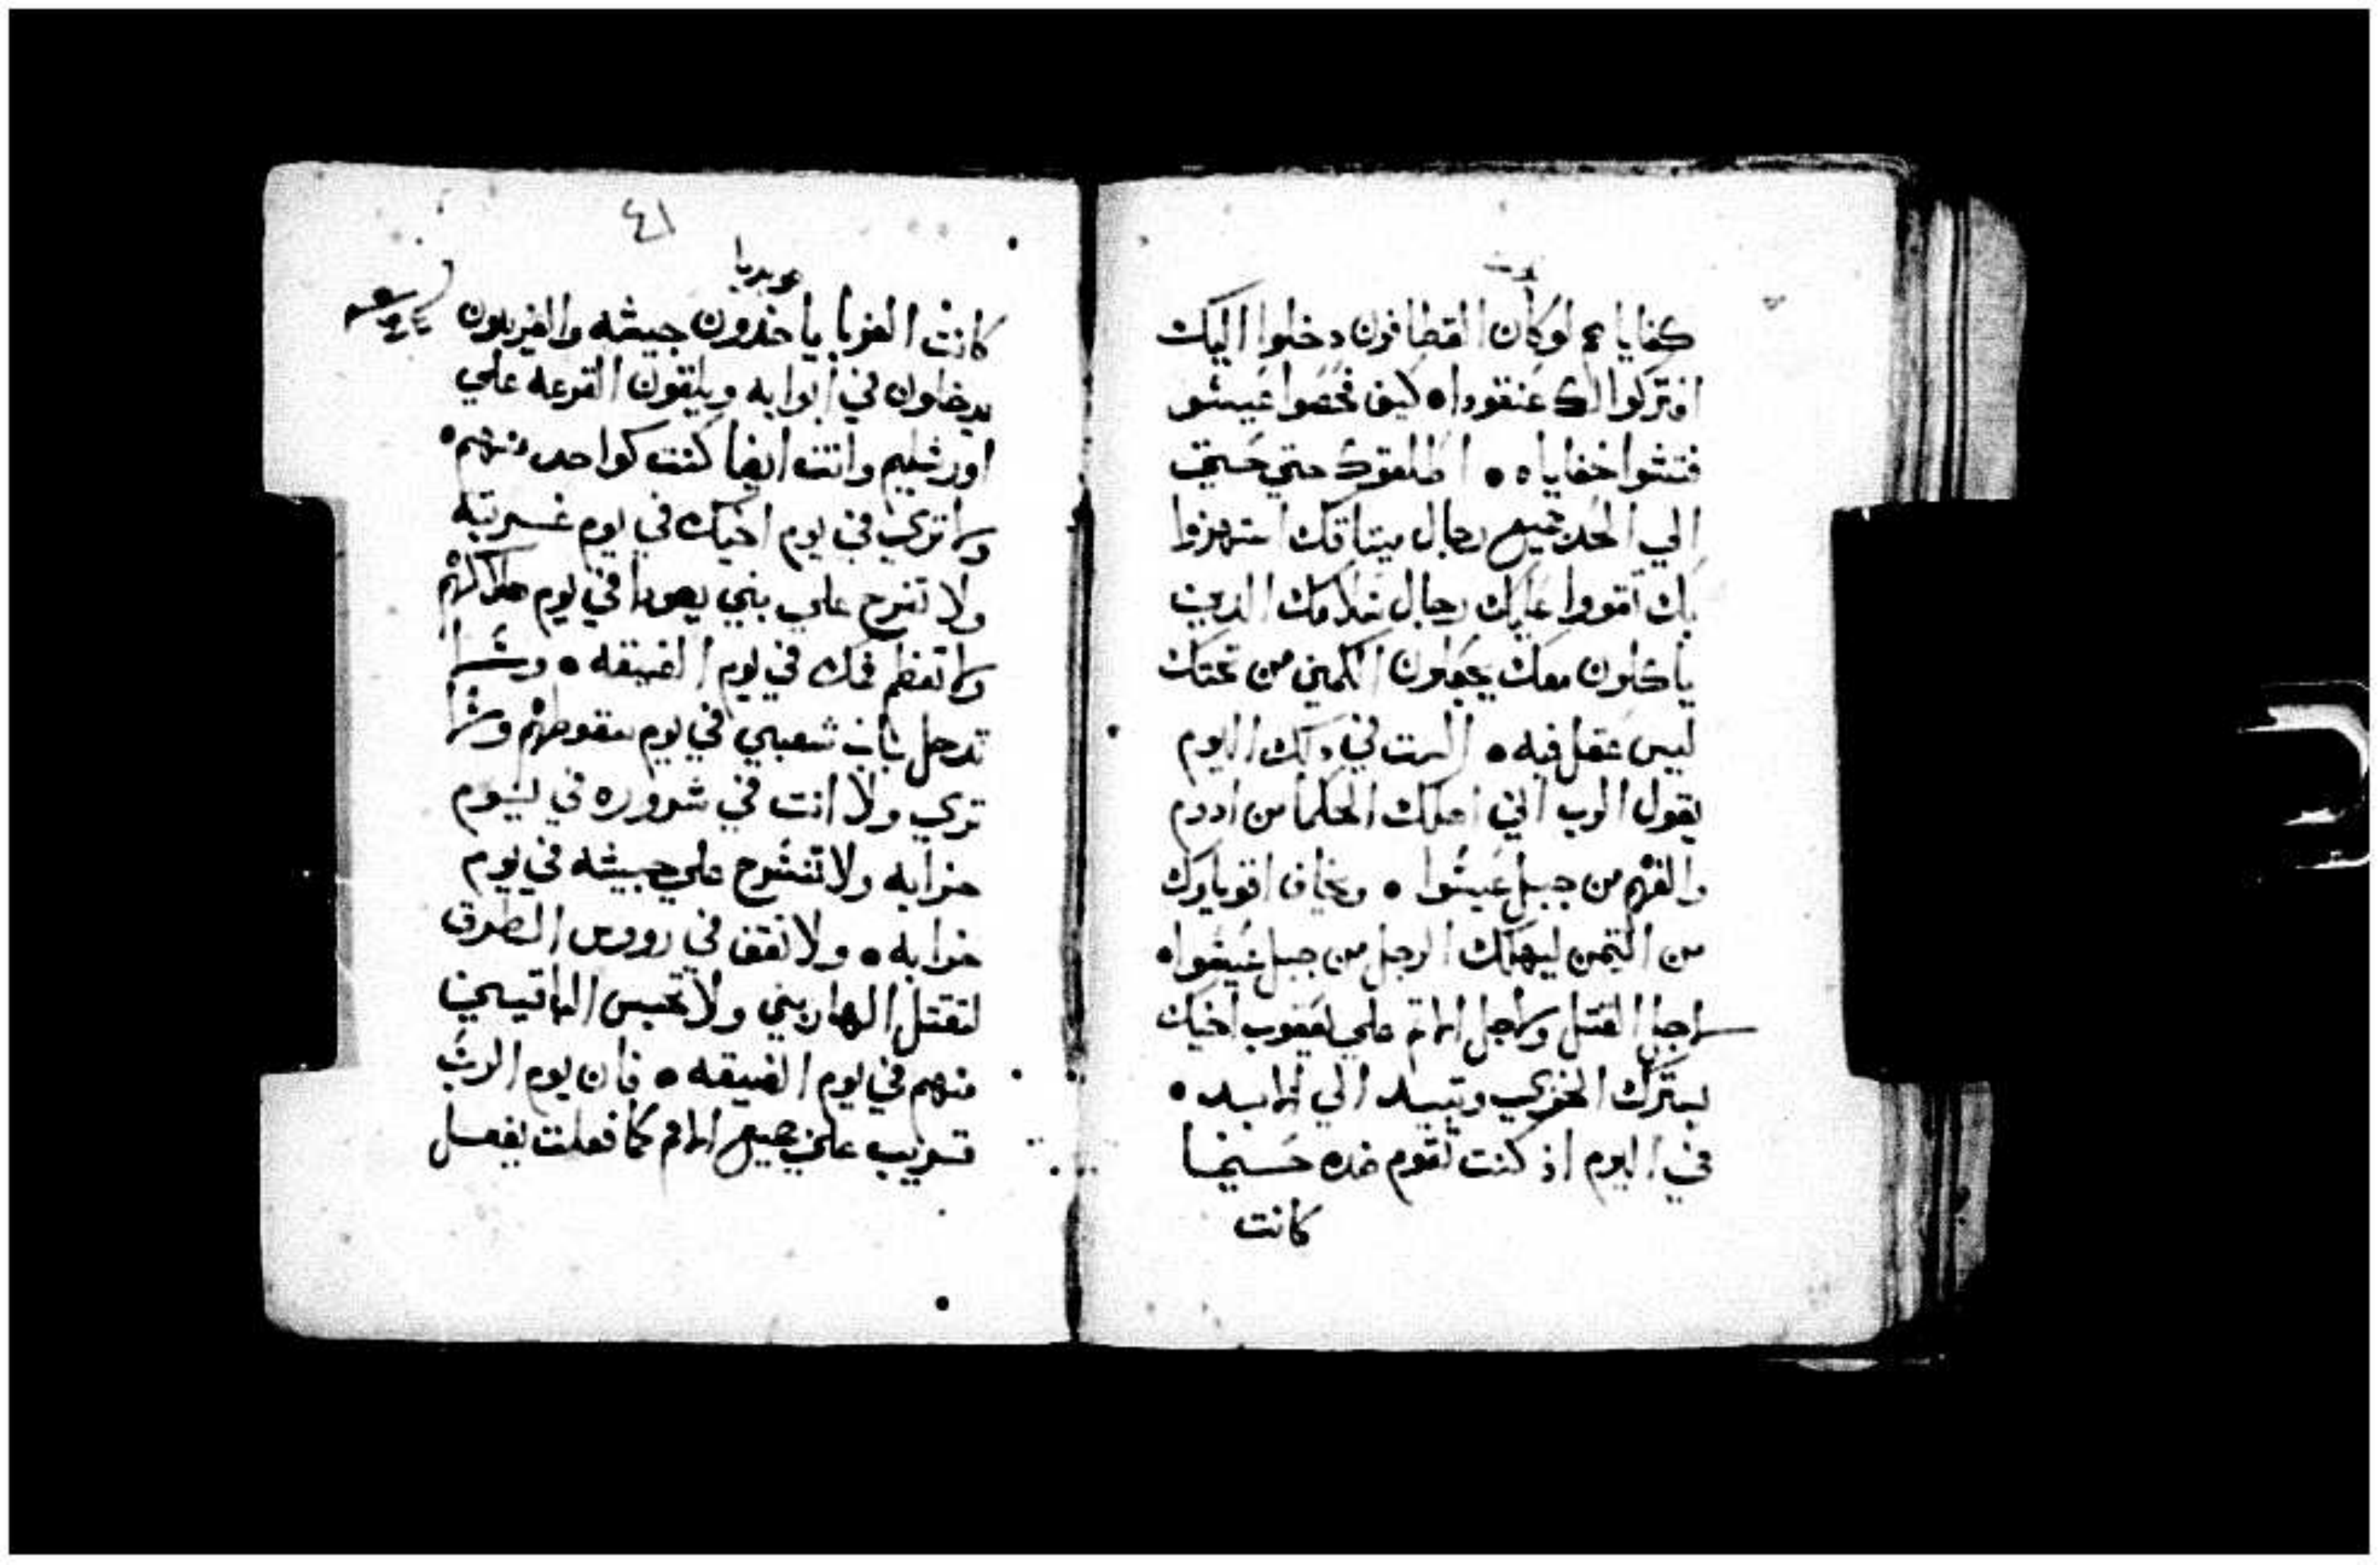 كفاياهم لو كان القطافون دخلوا اليك
افتركوا لك عنقودا ٥ كيف فحصوا عيسو
فتشوا خفاياه ٥ اطلقوك حتي حيت
الي الحد جميع رجال ميتاقك استهزوا
بك اقووا عليك رجال سلامك الدين
ياكلون معك يجعلون الكمين من تحتك
ليس عقل فيه ٥ الست في دلك اليوم
يقول الرب اني اهلك الحكما من ادوم
والفهم من جبل عيسوا ٥ ويخاف اقوياوك
من التيمن ليهلك الرجل من جبل عيسوا ٥
لاجل القتل ولاجل الاتم علي يعقوب اخيك
يسترك الخزي وتبيد الي الابد ٠
في اليوم اذ كنت تقوم ضده حينما
كانت
٤١
عوبديا
كانت الغربا ياخدون جيشه والغريبون
يدخلون في ابوابه ويلقون القرعه علي
اورشليم وانت ايضا كنت كواحد منهم ٠
ولا تري في يوم اخيك في يوم غربته
ولا تفرح علي بني يهودا في يوم هلاكهم
ولا تعظم فمك في يوم الضيقه ٥ ولا
تدخل باب شعبي في يوم سقوطهم ولا
تري ولا انت في شروره في يوم
خرابه ولا تنشرح علي جيشه في يوم
خرابه ٥ ولا تقف في رووس الطرق
لتقتل الهاربين ولا تحبس الباقيين
منهم في يوم الضيقه ٥ فان يوم الرب
قريب علي جميع الامم كما فعلت يفعل